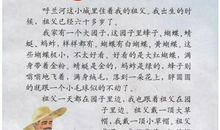 呼兰河这小城里住着我的祖父。我出生的时
候，祖父已经六十多岁了。
我家有一个大园子，这园子里蜂子、蝴蝶、蜻
蜓、蚂蚱，样样都有。蝴蝶有白蝴蝶、黄蝴蝶，这
些蝴蝶极小，不太好看。好看的是大红蝴蝶，满
身带着金粉。蜻蜓是金的，蚂蚱是绿的，蜂子则
嗡嗡地飞着，满身绒毛，落到一朵花上，胖圆圆
的就跟一个小毛球似的不动了。
祖父一天都在园子里边，我也跟着祖父在园
子里边。祖父戴一顶大草
帽，我戴一顶小草帽，